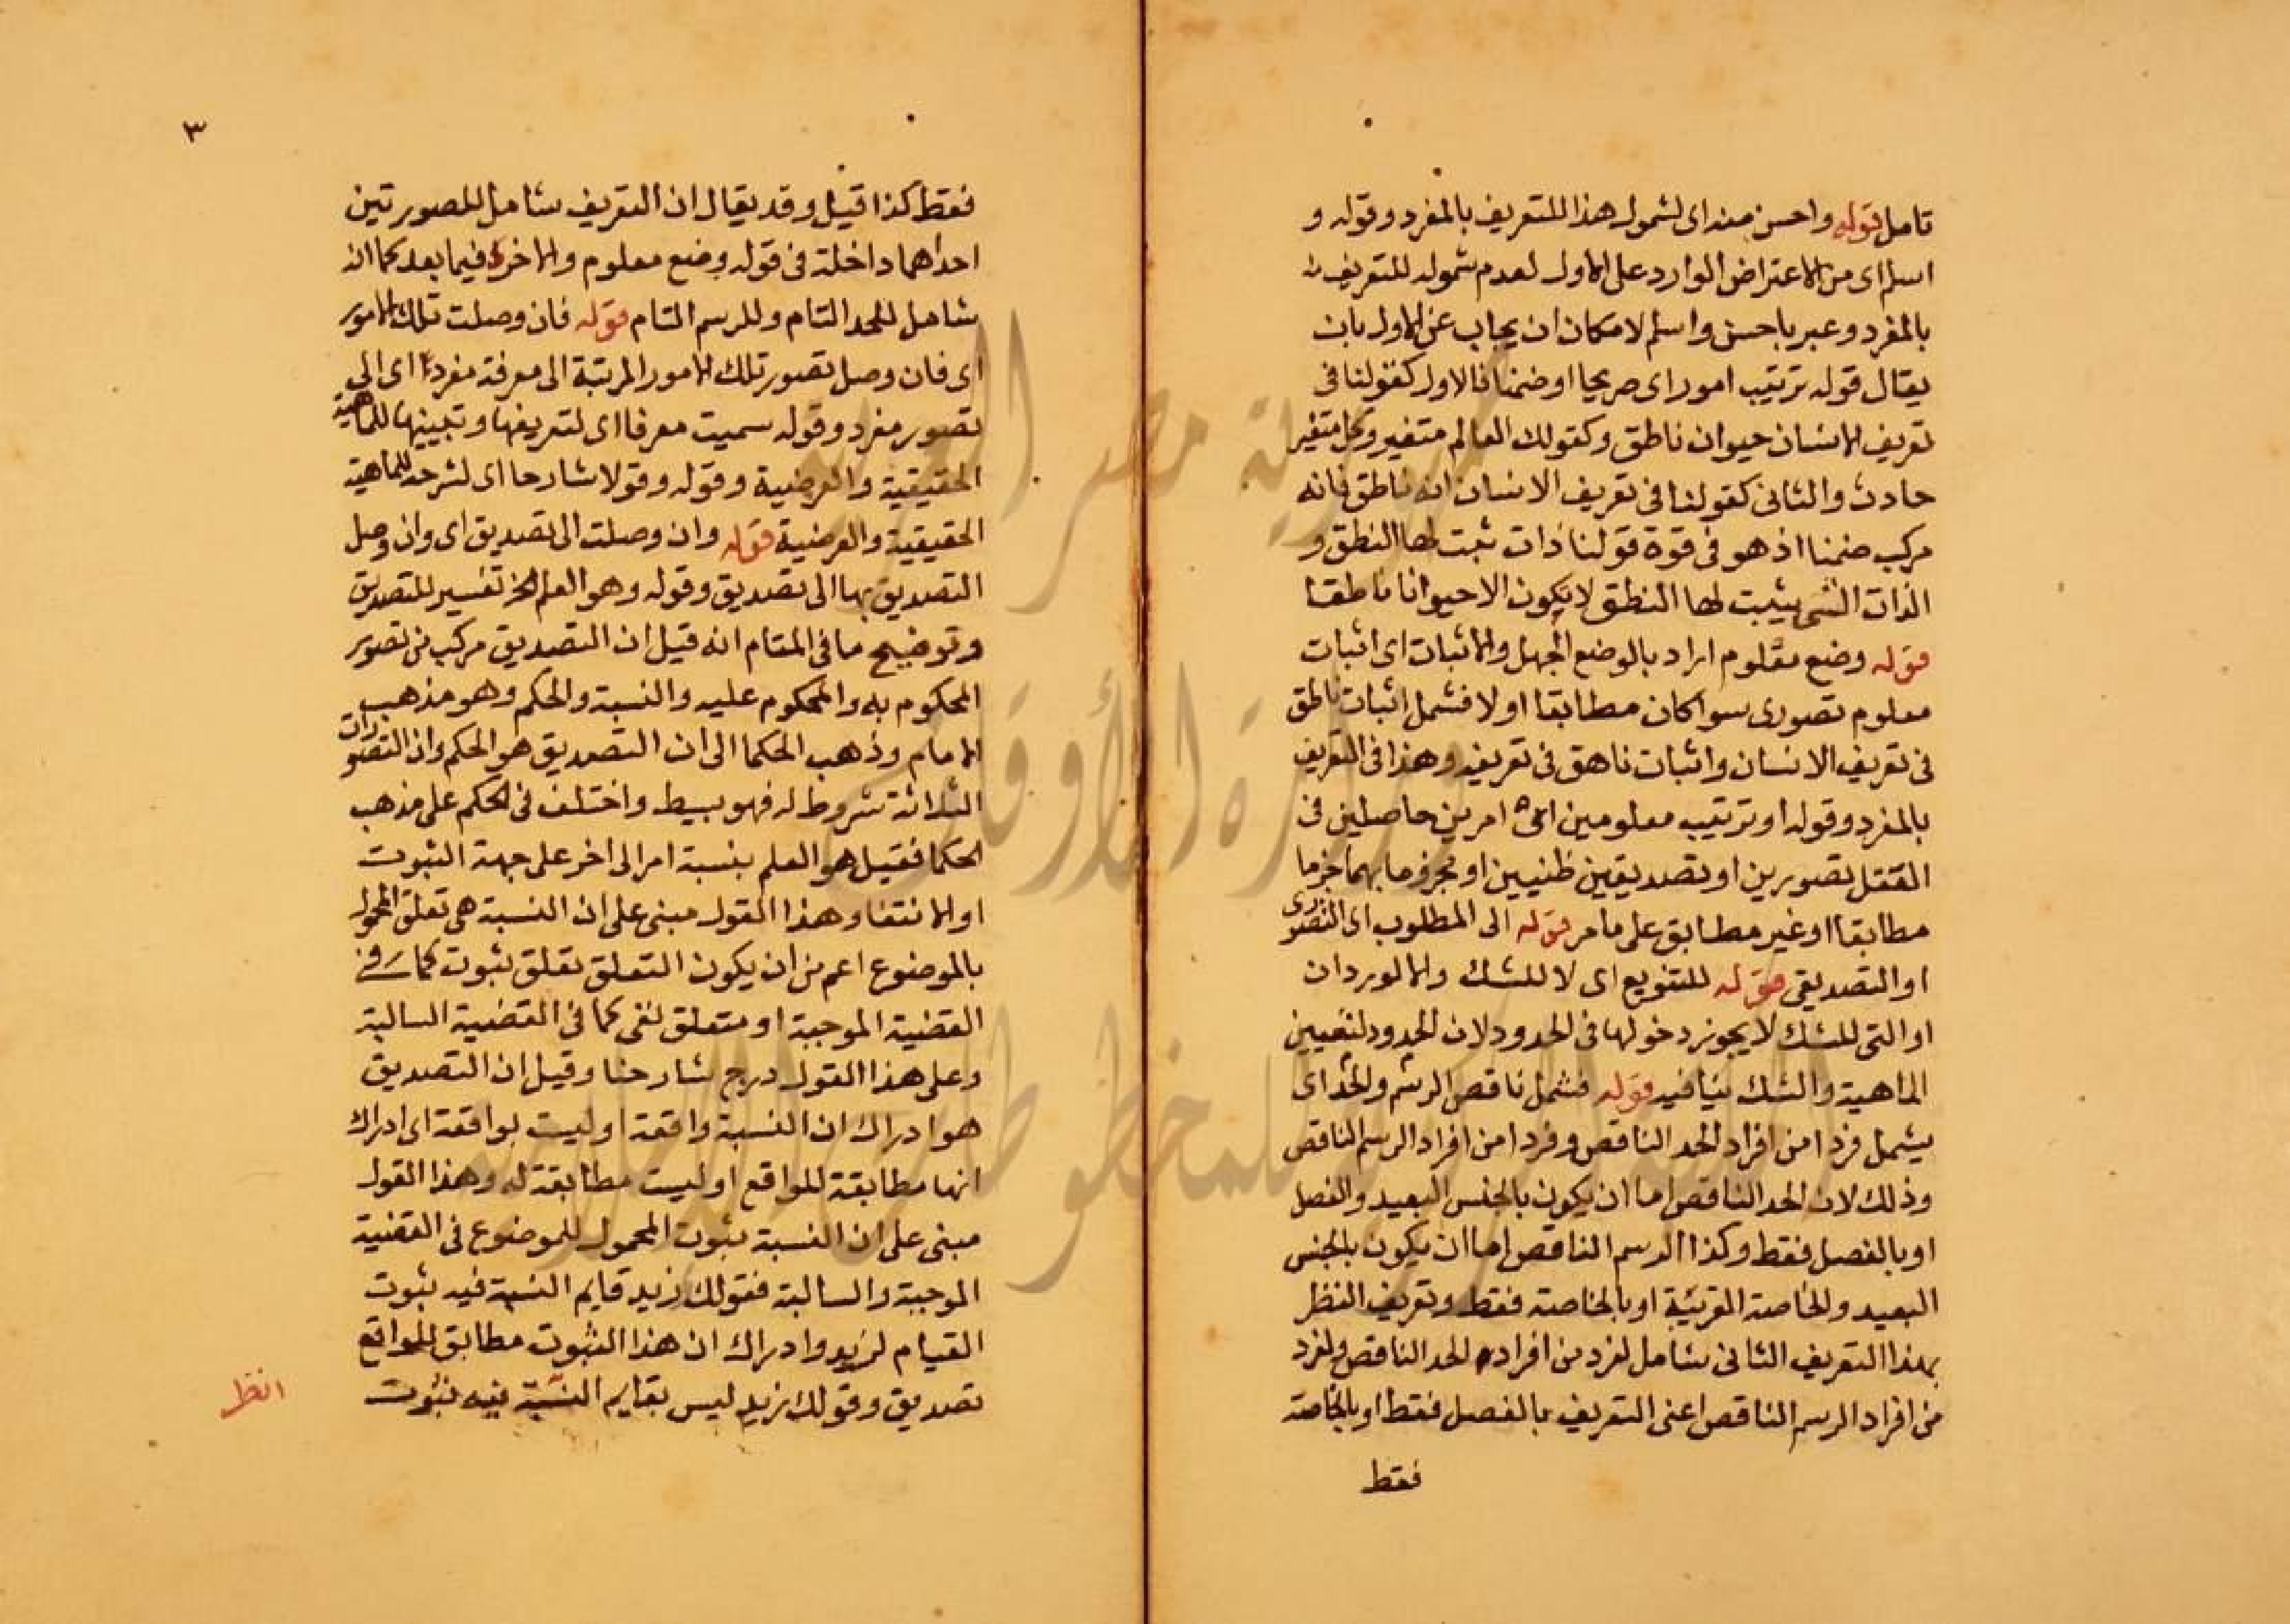 تامل قوله واحسن منه اى لشمول هذا للتعريف بالمفرد وقوله و
اسلم اى من الاعتراض الوارد على الاول لعدم شموله للتعريف
بالمفرد وعبر باحسن واسلم لامكان ان يجاب عن الاول بان
يقال قوله ترتيب امور اى صريحا او ضمنا فالاول كقولنا فى
تعريف الانسان حيوان ناطق وكقولك العالم متغير وكل متغير
حادث والثانى كقولنا فى تعريف الانسان انه ناطق فانه
مركب ضمنا اذ هو فى قوة قولنا ذات ثبت لها النطق و
الذات التى يثبت لها النطق لا يكون الا حيوانا ناطقا
قوله وضع معلوم اراد بالوضع الجهل والاثبات اى اثبات
معلوم تصورى سوا كان مطابقا او لا فشمل اثبات ناطق
فى تعريف الانسان واثبات ناهق فى تعريفه وهذا فى التعريف
بالمفرد وقوله او ترتيب معلومين اى امرين حاصلين فى
العقل تصورين او تصديقين ظنيين او مجزوما بهما جزما
مطابقا او غير مطابق على ما مر قوله الى المطلوب اى التصورى
او التصديقى قوله للتنويع اى لا للشك والا لورد ان
او التى للشك لا يجوز دخولها فى الحدود لان الحدود لتعيين
الماهية والشك ينافيه قوله فشمل ناقص الرسم والحد اى
يشمل فردا من افراد الحد الناقص وفردا من افراد الرسم الناقص
وذلك لان الحد الناقص اما ان يكون بالجنس البعيد والفصل
او بالفصل فقط وكذا الرسم الناقص اما ان يكون بالجنس
البعيد والخاصة القريبة او بالخاصة فقط وتعريف النظر
بهذا التعريف الثانى شامل لفرد من افراد الحد الناقص ولفرد
من افراد الرسم الناقص اعنى التعريف بالفصل فقط او بالخاصة
فقط
٣
فقط كذا قيل وقد يقال ان التعريف شامل للصورتين
احداهما داخلة فى قوله وضع معلوم والاخرى فيما بعد كما انه
شامل للحد التام وللرسم التام قوله فان وصلت تلك الامور
اى فان وصل تصور تلك الامور المرتبة الى معرفة مفرد اى الى
تصور مفرد وقوله سميت معرفا اى لتعريفها وتبيينها للماهية
الحقيقية والعرضية وقوله وقولا شارحا اى لشرحه للماهية
الحقيقية والعرضية قوله وان وصلت الى تصديق اى وان وصل
التصديق بها الى تصديق وقوله وهو العلم الخ تفسير للتصديق
وتوضيح ما فى المقام انه قيل ان التصديق مركب من تصور
المحكوم به والمحكوم عليه والنسبة والحكم وهو مذهب
الامام وذهب الحكما الى ان التصديق هو الحكم وان التصورات
الثلاثة شروط له فهو بسيط واختلف فى الحكم على مذهب
الحكما فقيل هو العلم بنسبة امر الى اخر على جهة الثبوت
او الانتفا وهذا القول مبنى على ان النسبة هى تعلق المحمول
بالموضوع اعم من ان يكون التعلق تعلق ثبوت كما فى
القضية الموجبة او متعلق نفى كما فى القضية السالبة
وعلى هذا القول درج شارحنا وقيل ان التصديق
هو ادراك ان النسبة واقعة او ليست بواقعة اى ادراك
انها مطابقة للواقع او ليست مطابقة له وهذا القول
مبنى على ان النسبة ثبوت المحمول للموضوع فى القضية
الموجبة والسالبة فقولك زيد قايم النسبة فيه ثبوت
القيام لزيد وادراك ان هذا الثبوت مطابق للواقع
تصديق وقولك زيد ليس بقايم النسبة فيه ثبوت
انظر
جمهورية مصر العربية
وزارة الأوقاف